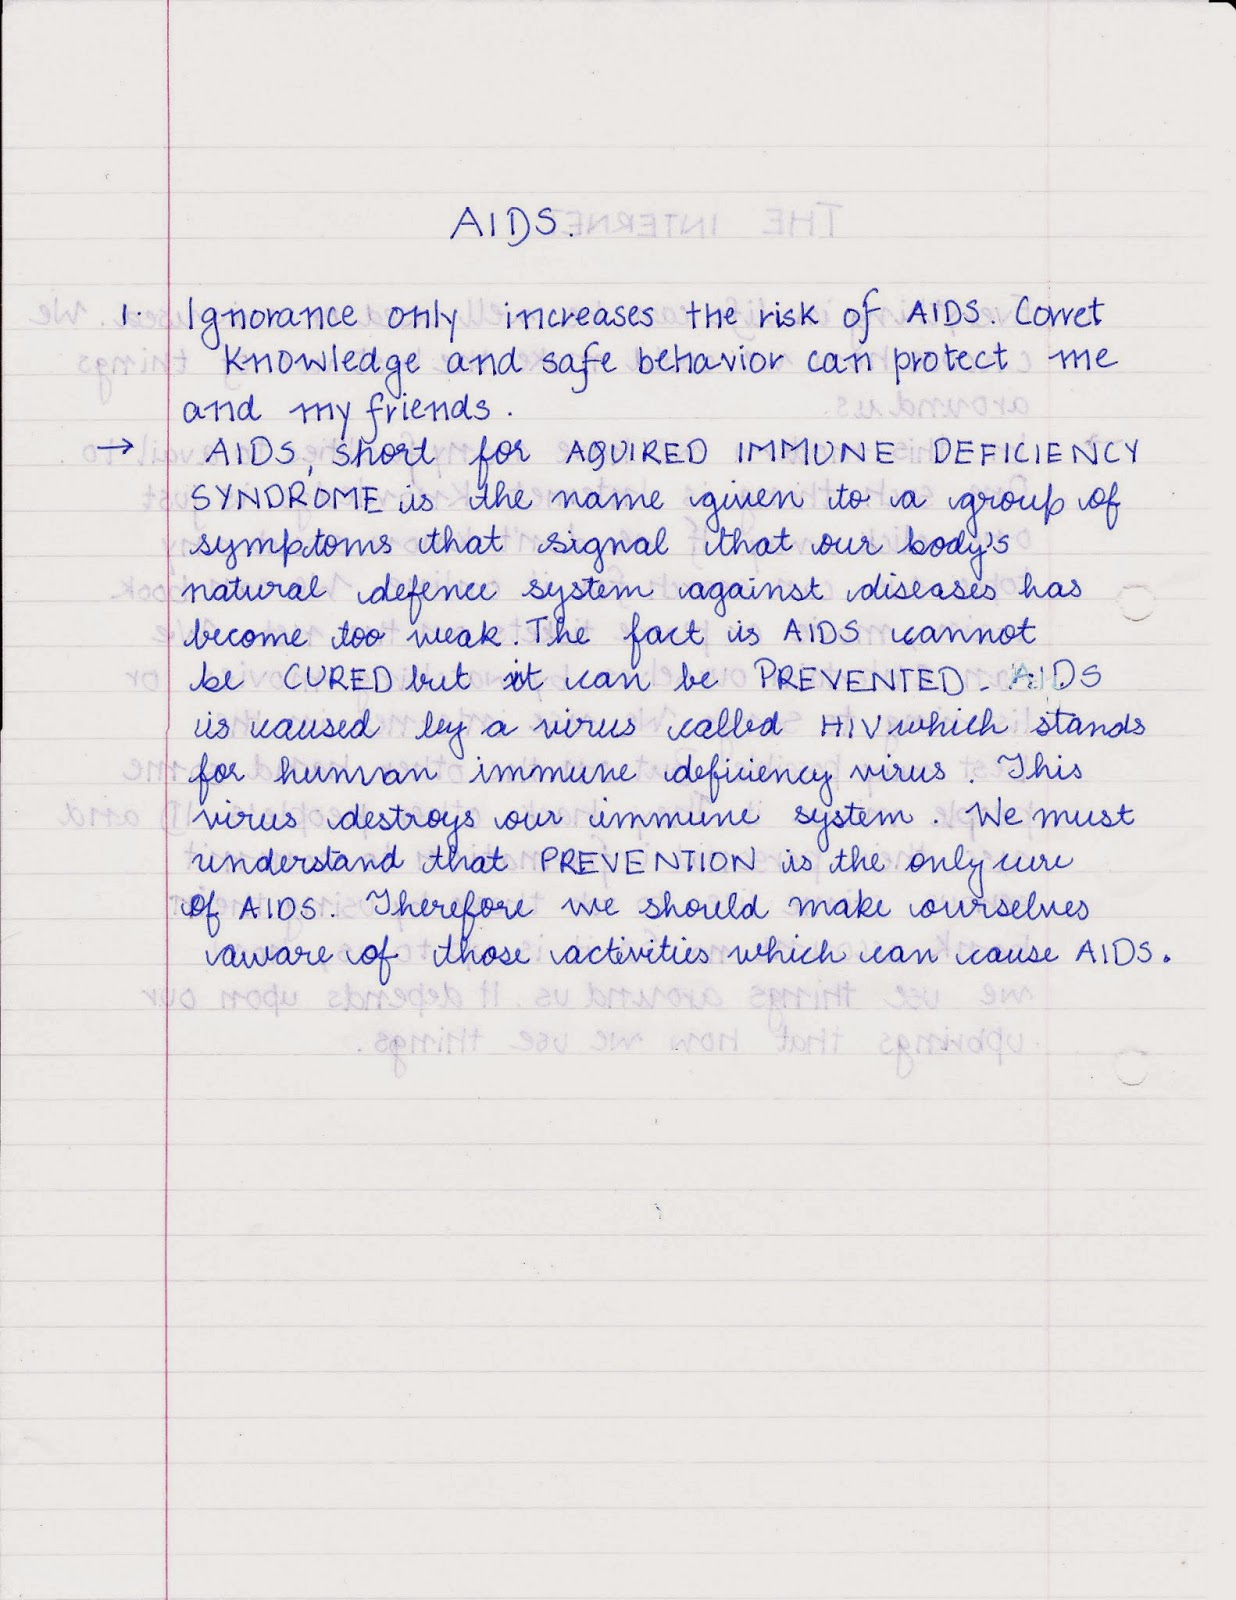 AIDS.
1. Ignorance only increases the risk of AIDS. Corret
knowledge and safe behavior can protect me
and my friends.
→ AIDS, short for AQUIRED IMMUNE DEFICIENCY
SYNDROME is the name given to a group of
symptoms that signal that our body's
natural defence system against diseases has
become too weak. The fact is AIDS cannot
be CURED but it can be PREVENTED. AIDS
is caused by a virus called HIV which stands
for human immune deficiency virus. This
virus destroys our immune system. We must
understand that PREVENTION is the only cure
of AIDS. Therefore we should make ourselves
aware of those activities which can cause AIDS.